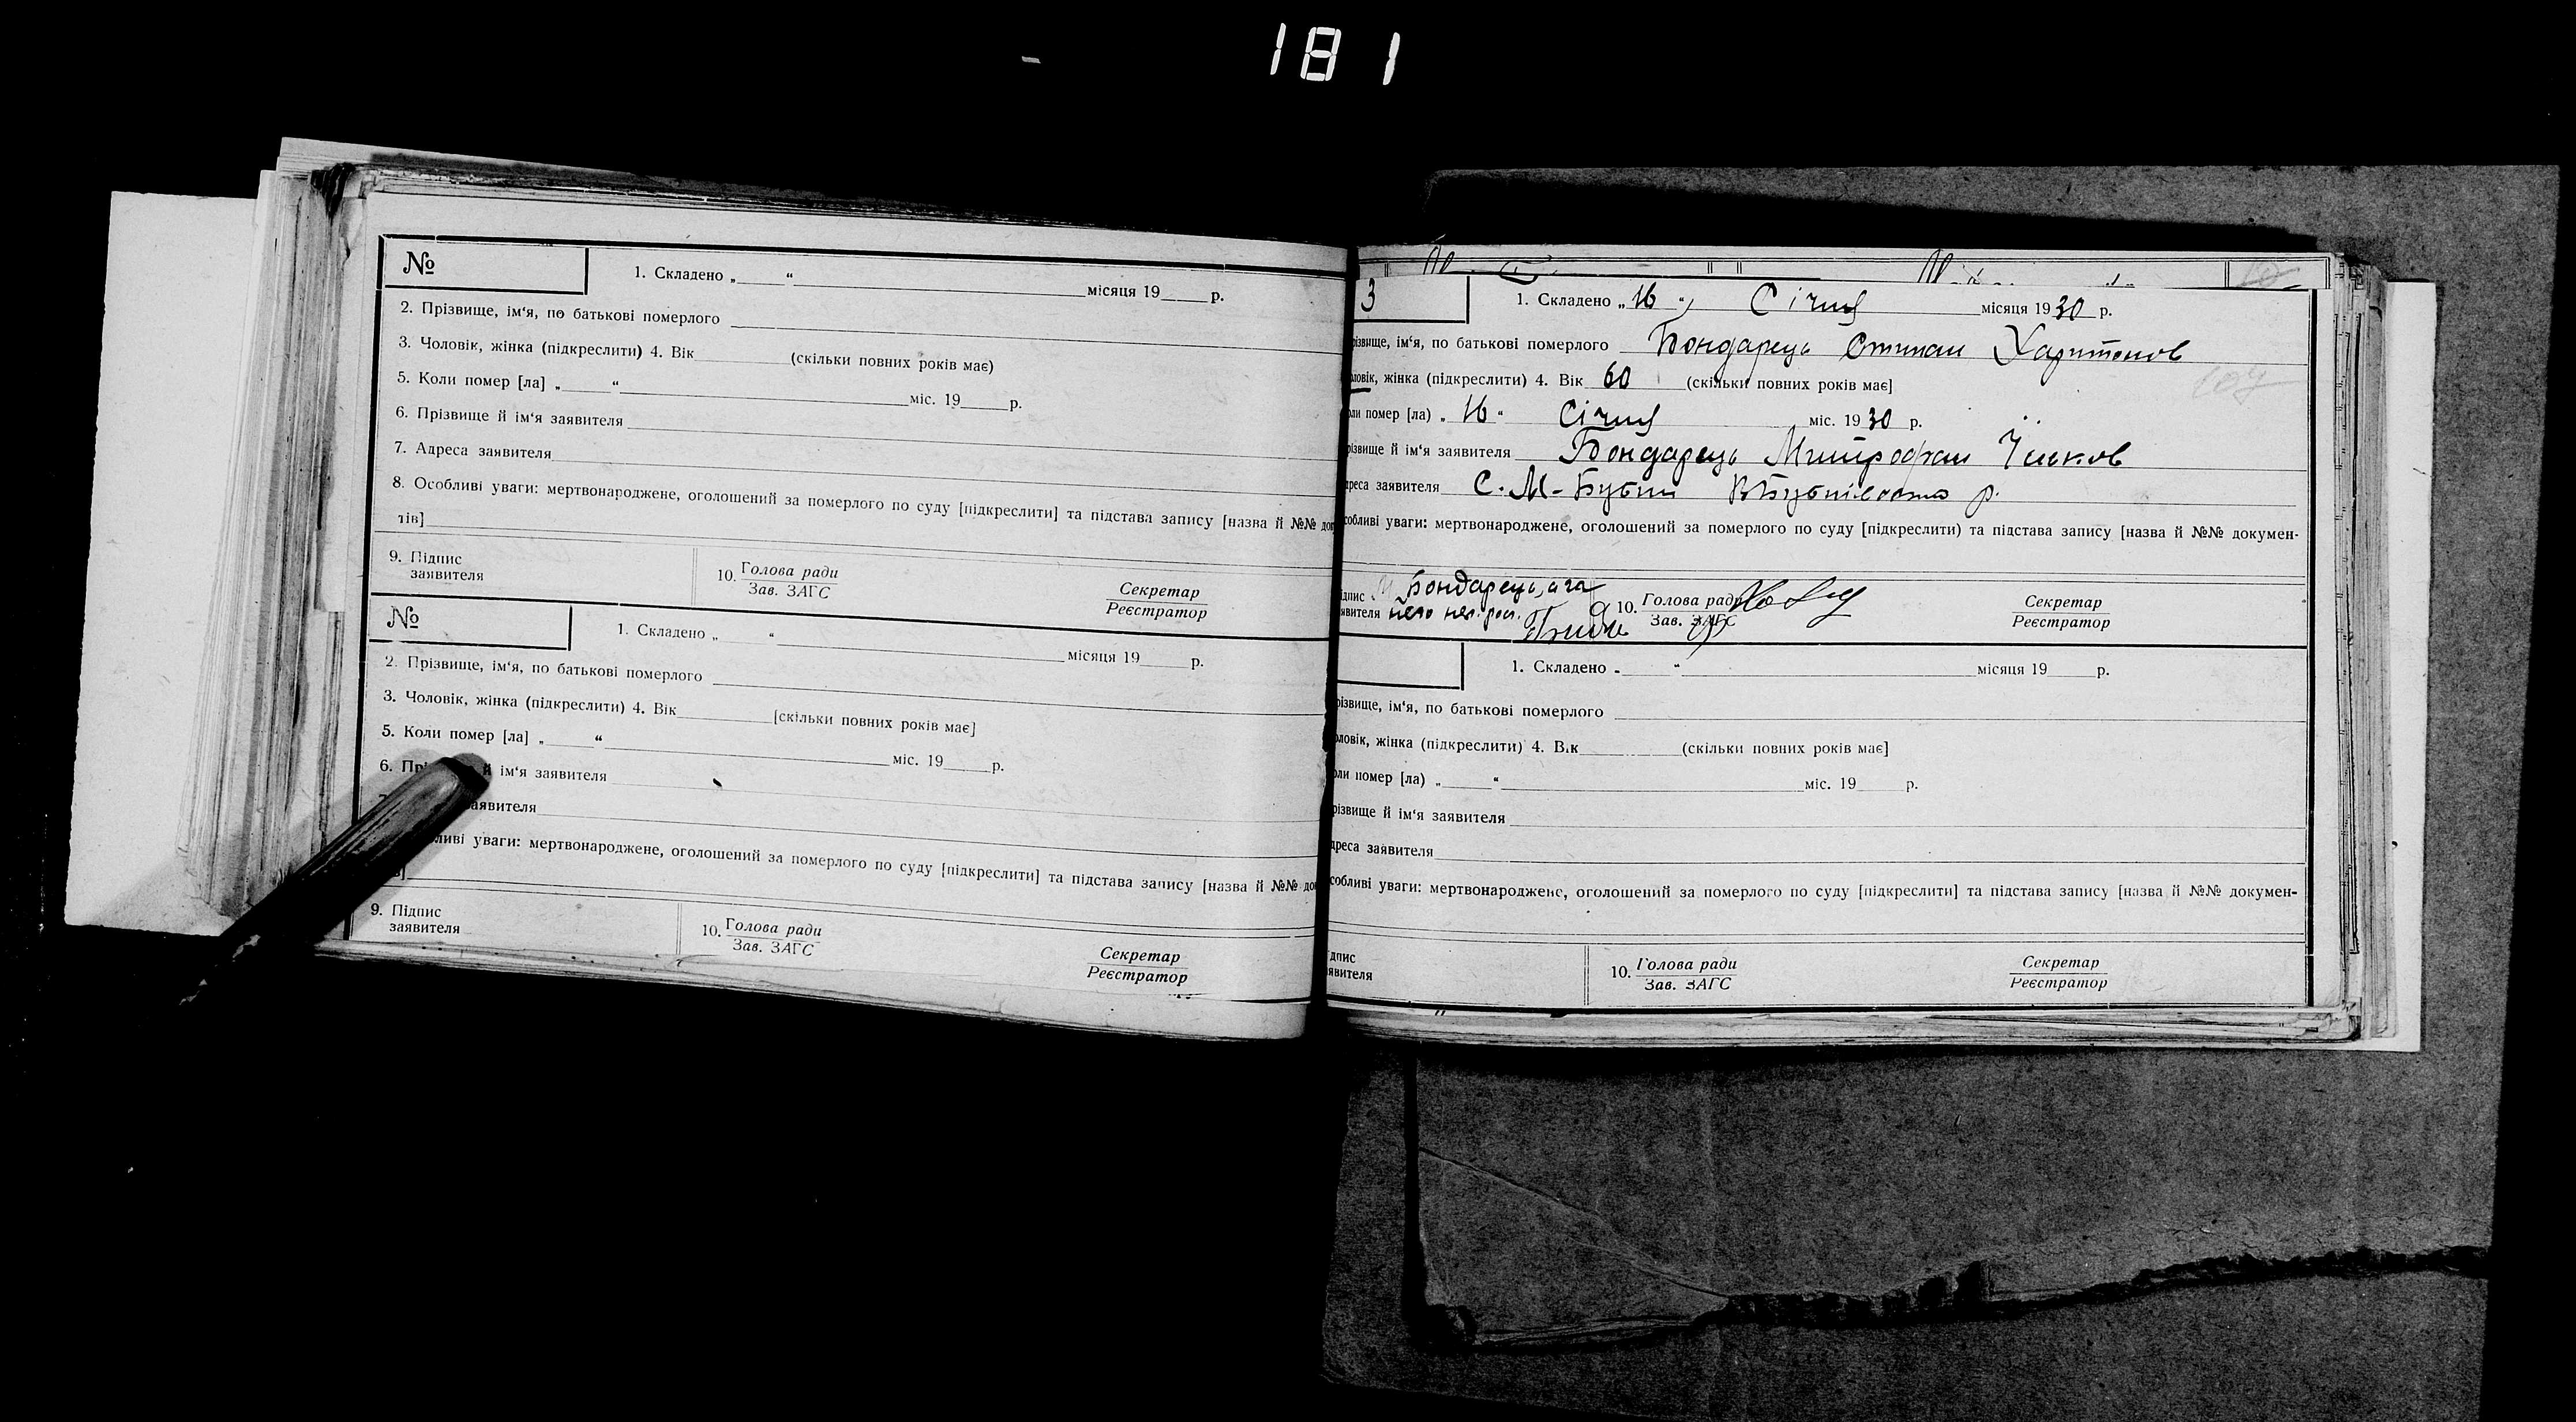 181
№ 1. Складено „ “ місяця 19 р.
2. Прізвище, ім‘я, по батькові померлого
3. Чоловік, жінка (підкреслити) 4. Вік (скільки повних років має)
5. Коли помер [ла] „ “ міс. 19 р.
6. Прізвище й ім‘я заявителя
7. Адреса заявителя
8. Особливі уваги: мертвонароджене, оголошений за померлого по суду [підкреслити] та підстава запису [назва й №№ до
тів]
9. Підпис
заявителя
10. Голова ради
Зав. ЗАГС
Секретар
Реєстратор
№ 1. Складено „ “ місяця 19 р.
2. Прізвище, ім‘я, по батькові померлого
3. Чоловік, жінка (підкреслити) 4. Вік [скільки повних років має]
5. Коли помер [ла] „ “ міс. 19 р.
6. Пр й ім‘я заявителя
аявителя
ливі уваги: мертвонароджене, оголошений за померлого по суду [підкреслити] та підстава запису [назва й №№ до
в]
9. Підпис
заявителя
10. Голова ради
Зав. ЗАГС
Секретар
Реєстратор
3 1. Складено „16“ Січня місяця 1930 р.
різвище, ім‘я, по батькові померлого Бондарець Степан Харитонов
ловік, жінка (підкреслити) 4. Вік 60 (скільки повних років має]
ли помер [ла) „16“ Січня міс. 1930 р.
різвище й ім‘я заявителя Бондарець Митрофан
дреса заявителя С. М-Бубни р.
собливі уваги: мертвонароджене, оголошений за померлого по суду [підкреслити) та підстава запису [назва й №№ докумен-
ідпис Бондарець, а за
явителя него
10. Голова ради
Зав. ЗАГС
Секретар
Реєстратор
1. Складено „ “ місяця 19 р.
різвище, ім‘я, по батькові померлого
ловік, жінка (підкреслити) 4. Вік (скільки повних років має]
ли помер [ла) „ “ міс. 19 р.
різвище й ім‘я заявителя
дреса заявителя
собливі уваги: мертвонароджене, оголошений за померлого по суду [підкреслити] та підстава запису [назва й №№ докумен-
дпис
явителя
10. Голова ради
Зав. ЗАГС
Секретар
Реєстратор